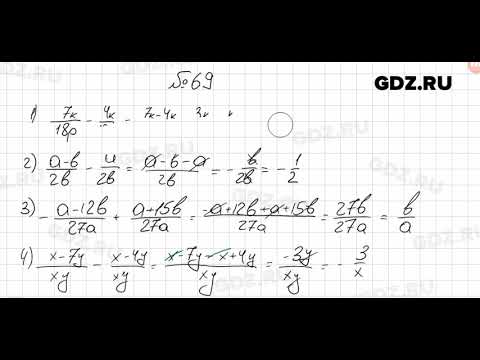 №69
GDZ.RU
1) 7k/18p - 4k/ - 7k-4k 3k k
2) a-b/2b - a/2b = a-b-a/2b = - b/2b = - 1/2
3) - a-12b/27a + a+15b/27a = -a+12b+a+15b/27a = 27b/27a = b/a
4) x-7y/xy - x-4y/xy = x-7y-x+4y/xy = -3y/xy = - 3/x